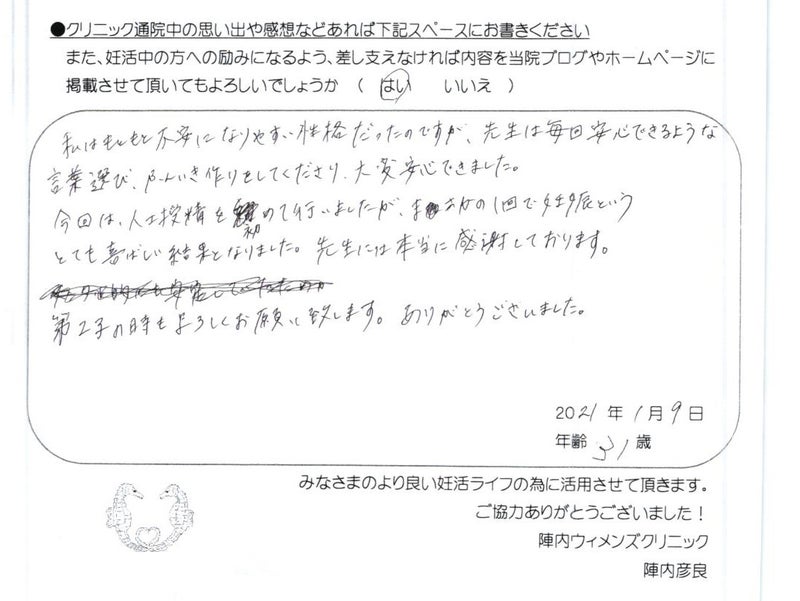 ●クリニック通院中の思い出や感想などあれば下記スペースにお書きください
また、妊活中の方への励みになるよう、差し支えなければ内容を当院ブログやホームページに
掲載させて頂いてもよろしいでしょうか ( はい いいえ )
私はもともと不安になりやすい性格だったのですが、先生は毎回安心できるような
言葉選び、ふんいき作りをしてくださり、大変安心できました。
今回は、人工授精を初めて行いましたが、まさかの1回で妊娠という
とても喜ばしい結果となりました。先生には本当に感謝しております。
第2子の時もよろしくお願い致します。ありがとうございました。
2021年1月9日
年齢 31歳
みなさまのより良い妊活ライフの為に活用させて頂きます。
ご協力ありがとうございました!
陣内ウィメンズクリニック
陣内彦良